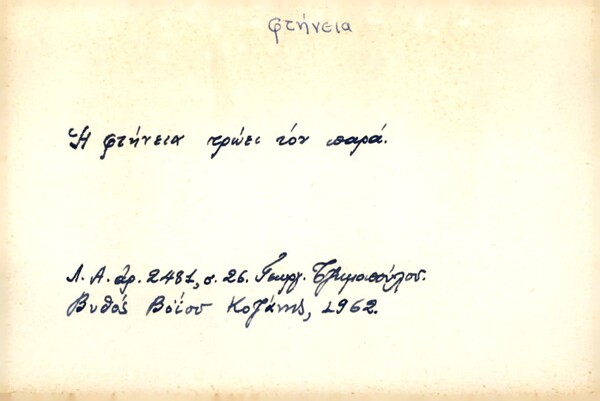 φτήνεια
Ἡ φτήνεια τρώει τόν παρά.
Λ. Α. ἀρ. 2481, σ. 26. Γεωργ.
Βυθός Βοΐου Κοζάνης, 1962.